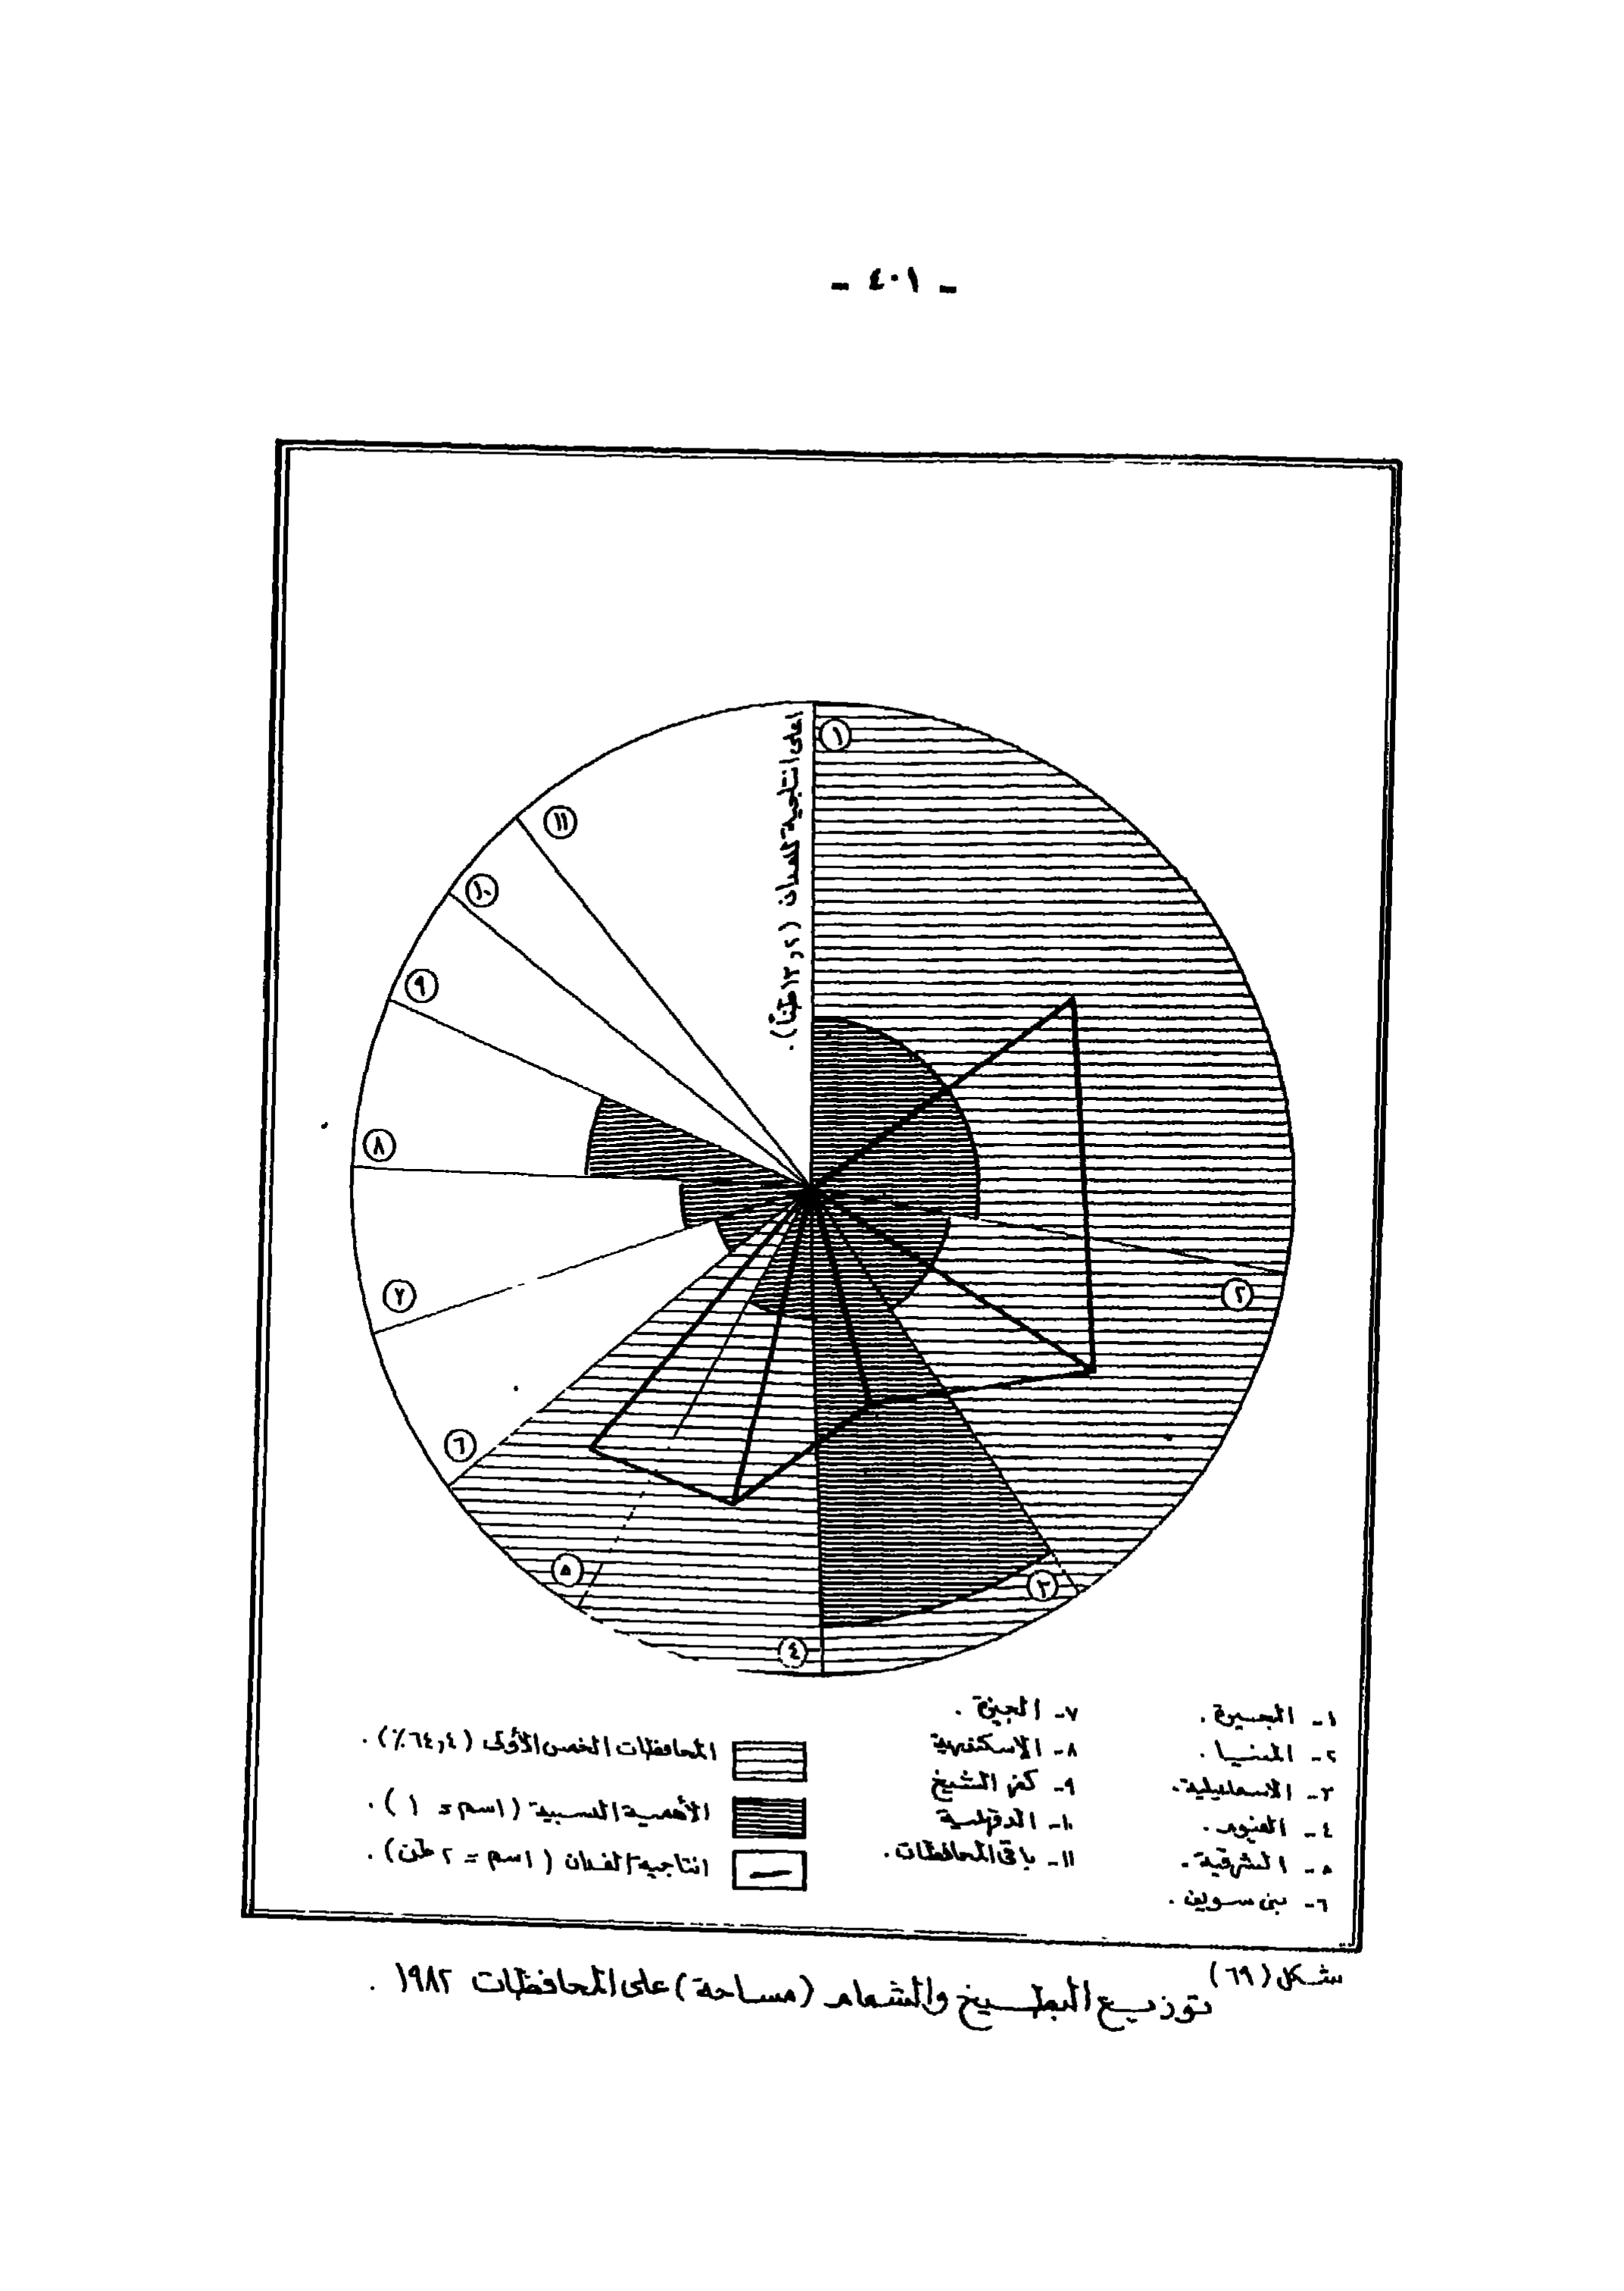 - ٤٠١ -
اعلى انتاجية للفدان (١٣,٢ طنا).
١
٢
٣
٤
٥
٦
٧
٨
٩
١٠
١١
١- البحيرة.
٢- المنيا.
٣- الاسماعيلية.
٤- الفيوم.
٥- الشرقية.
٦- بنى سويف.
٧- الجيزة.
٨- الاسكندرية
٩- كفر الشيخ
١٠- الدقهلية
١١- باقى المحافظات.
المحافظات الخمس الأولى (٦٤,٤٪).
الأهمية النسبية (اسم = ١).
انتاجية الفدان (اسم = ٢ طن).
شكل (٦٩)
توزيع البطيخ والشمام (مساحة) على المحافظات ١٩٨٢.